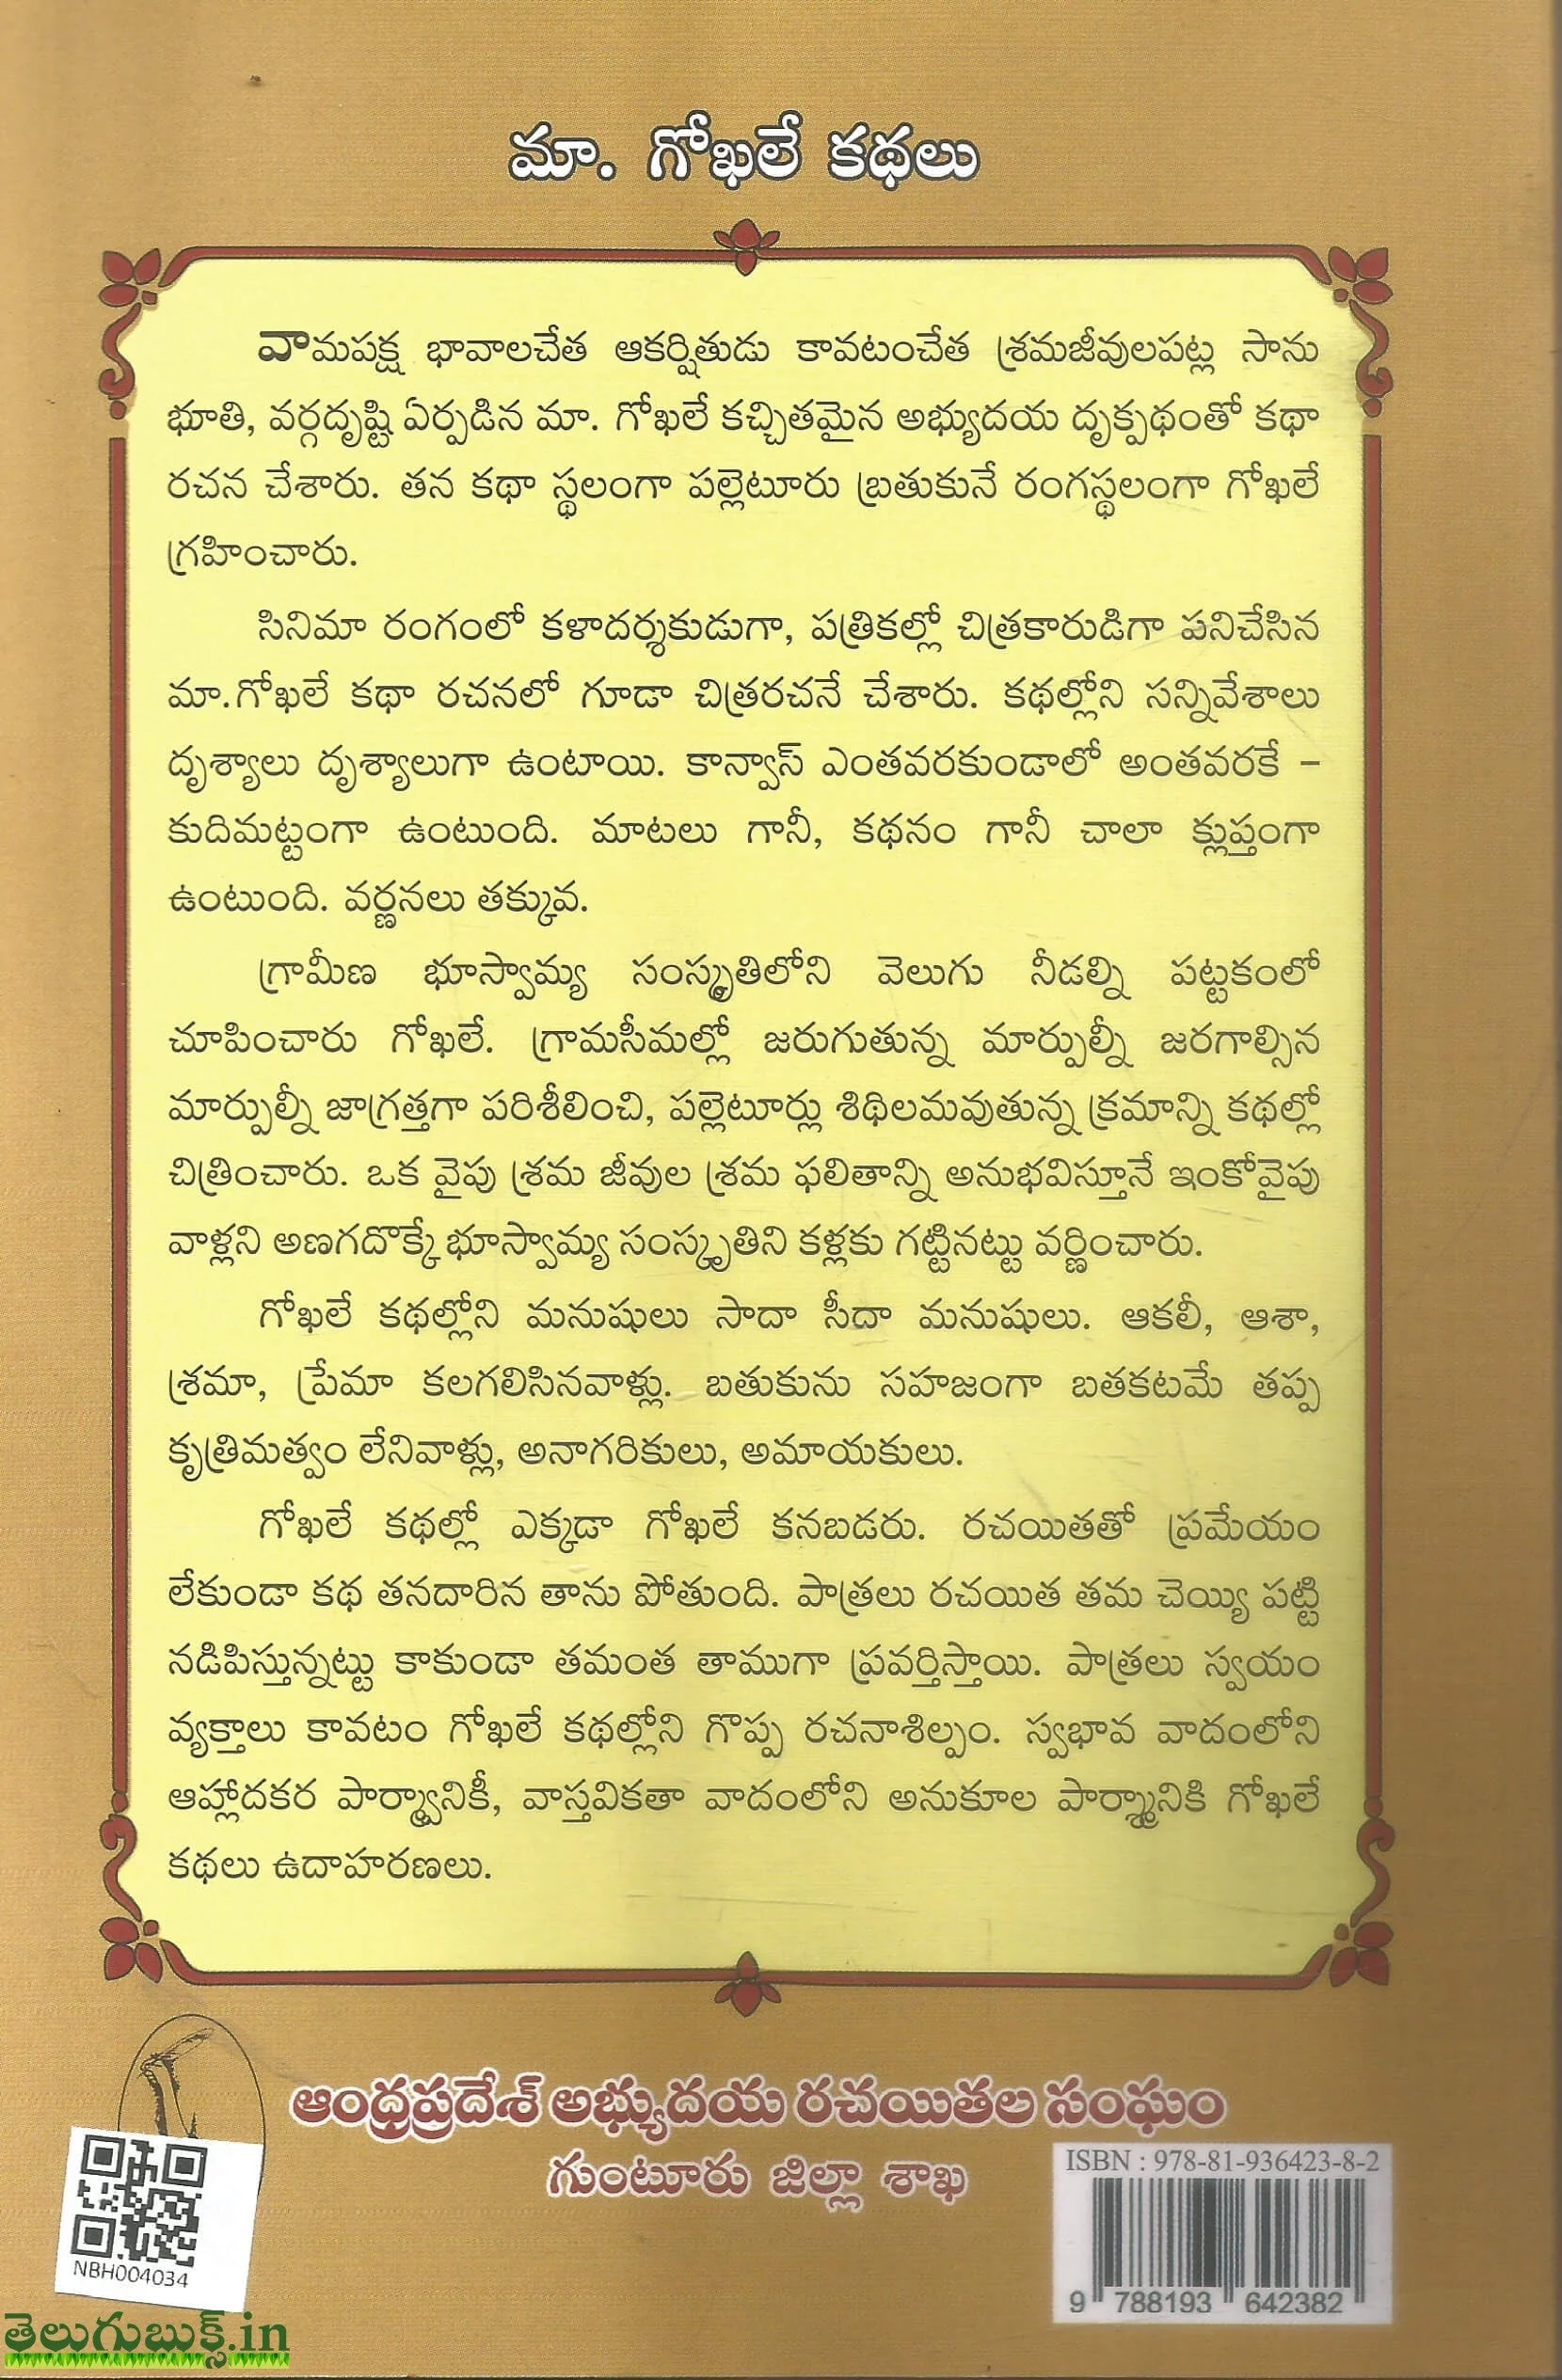 మా. గోఖలే కథలు
వామపక్ష భావాలచేత ఆకర్షితుడు కావటంచేత శ్రమజీవులపట్ల సాను
భూతి, వర్గదృష్టి ఏర్పడిన మా. గోఖలే కచ్చితమైన అభ్యుదయ దృక్పథంతో కథా
రచన చేశారు. తన కథా స్థలంగా పల్లెటూరు బ్రతుకునే రంగస్థలంగా గోఖలే
గ్రహించారు.
సినిమా రంగంలో కళాదర్శకుడుగా, పత్రికల్లో చిత్రకారుడిగా పనిచేసిన
మా.గోఖలే కథా రచనలో గూడా చిత్రరచనే చేశారు. కథల్లోని సన్నివేశాలు
దృశ్యాలు దృశ్యాలుగా ఉంటాయి. కాన్వాస్ ఎంతవరకుండాలో అంతవరకే -
కుదిమట్టంగా ఉంటుంది. మాటలు గానీ, కథనం గానీ చాలా క్లుప్తంగా
ఉంటుంది. వర్ణనలు తక్కువ.
గ్రామీణ భూస్వామ్య సంస్కృతిలోని వెలుగు నీడల్ని పట్టకంలో
చూపించారు గోఖలే. గ్రామసీమల్లో జరుగుతున్న మార్పుల్నీ జరగాల్సిన
మార్పుల్నీ జాగ్రత్తగా పరిశీలించి, పల్లెటూర్లు శిథిలమవుతున్న క్రమాన్ని కథల్లో
చిత్రించారు. ఒక వైపు శ్రమ జీవుల శ్రమ ఫలితాన్ని అనుభవిస్తూనే ఇంకోవైపు
వాళ్లని అణగదొక్కే భూస్వామ్య సంస్కృతిని కళ్లకు గట్టినట్టు వర్ణించారు.
గోఖలే కథల్లోని మనుషులు సాదా సీదా మనుషులు. ఆకలీ, ఆశా,
శ్రమా, ప్రేమా కలగలిసినవాళ్లు. బతుకును సహజంగా బతకటమే తప్ప
కృత్రిమత్వం లేనివాళ్లు, అనాగరికులు, అమాయకులు.
గోఖలే కథల్లో ఎక్కడా గోఖలే కనబడరు. రచయితతో ప్రమేయం
లేకుండా కథ తనదారిన తాను పోతుంది. పాత్రలు రచయిత తమ చెయ్యి పట్టి
నడిపిస్తున్నట్టు కాకుండా తమంత తాముగా ప్రవర్తిస్తాయి. పాత్రలు స్వయం
వ్యక్తాలు కావటం గోఖలే కథల్లోని గొప్ప రచనాశిల్పం. స్వభావ వాదంలోని
ఆహ్లాదకర పార్శ్వానికీ, వాస్తవికతా వాదంలోని అనుకూల పార్శ్మానికి గోఖలే
కథలు ఉదాహరణలు.
ఆంధ్రప్రదేశ్ అభ్యుదయ రచయితల సంఘం
గుంటూరు జిల్లా శాఖ
ISBN : 978-81-936423-8-2
9 788193 642382
NBH004034
తెలుగుబుక్స్.in